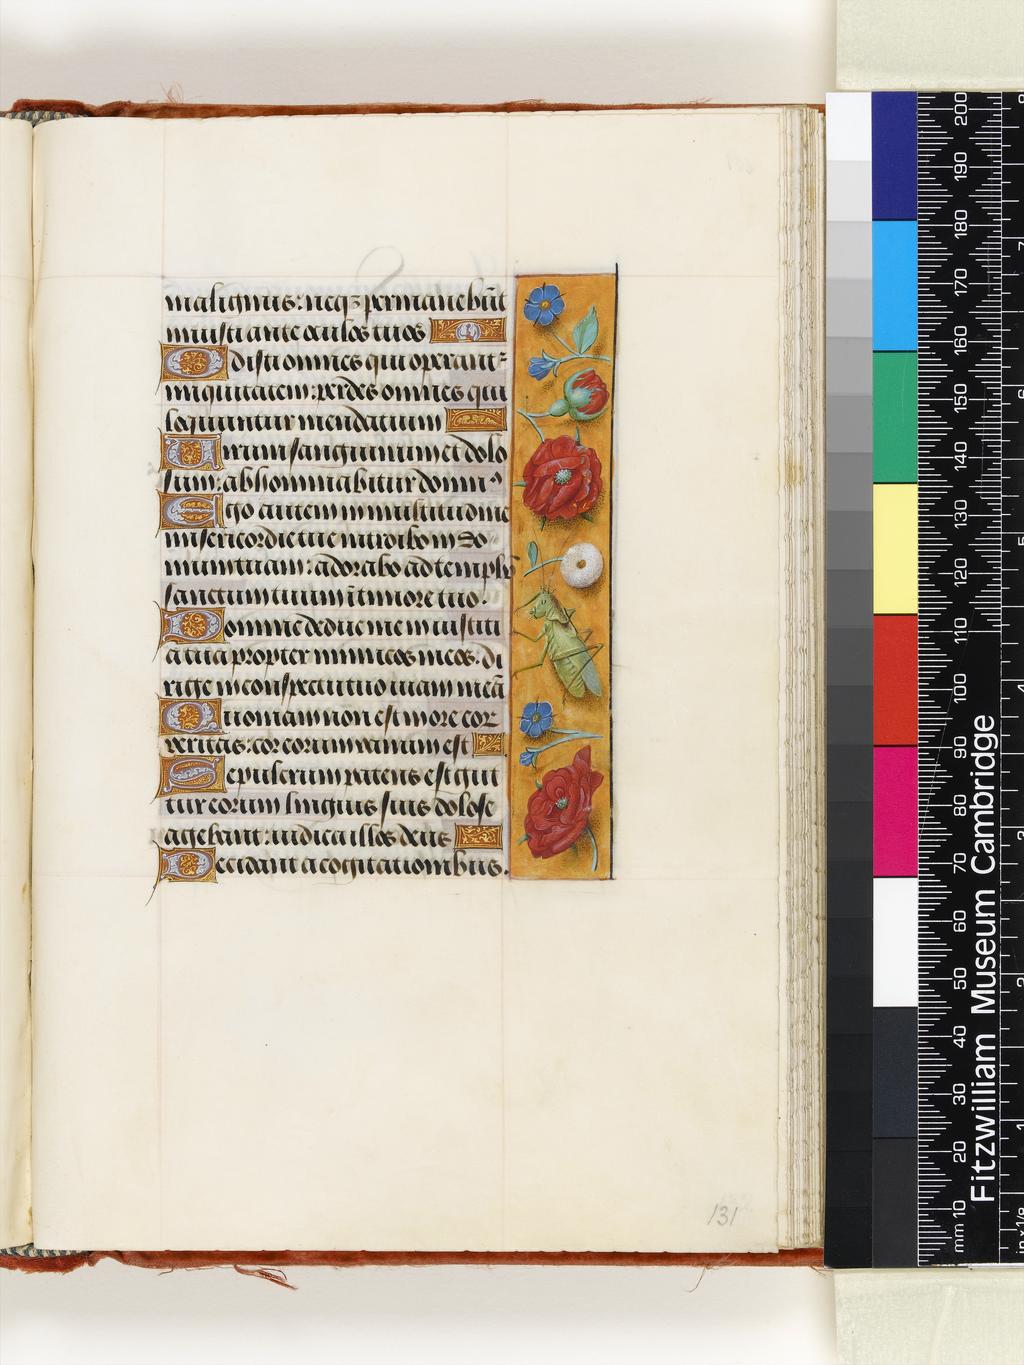 malignus: neq3 permanebūt
iniusti ante oculos tuos
Odisti omnes qui operant᷑
iniquitatem: perdes omnes qui
loquuntur mendatium
Uirum sanguinum et dolo
sum: abhominabitur domin9
Ego autem in multitudine
misericordie tue introibo in do
mum tuam: adorabo ad templū
sanctum tuum ī timore tuo.
Domine deduc me in iustiti
a tua propter inimicos meos: di
rige in conspectu tuo uiam meā
Quoniam non est in ore eor
veritas: cor eorum vanum est
Sepulcrum patens est gut
tur eorum linguis suis dolose
agebant: iudica illos deus
Decidant a cogitationibus.
131
Fitzwilliam Museum Cambridge
200
190
180
170
160
150
140
130
120
110
100
90
80
70
60
50
40
30
20
mm 10